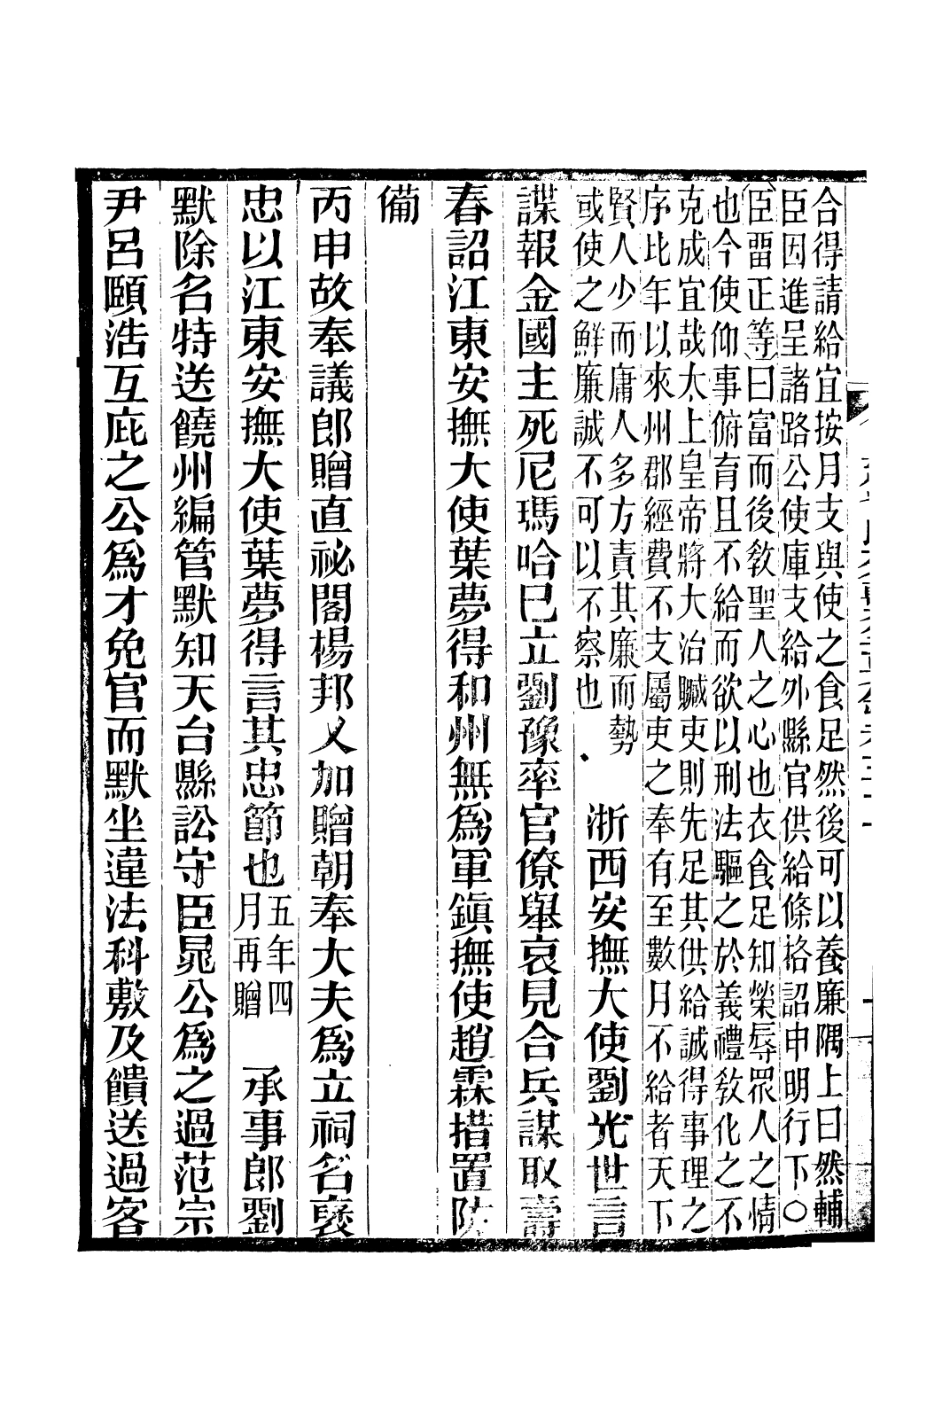 合得請給宜按月支與使之食足然後可以養廉隅上曰然輔
臣因進呈諸路公使庫支給外縣官供給條格詔申明行下〇
臣畱正等曰富而後敎聖人之心也衣食足知榮辱眾人之情
也今使仰事俯育且不給而欲以刑法驅之於義禮敎化之不
克成宜哉太上皇帝將大治贓吏則先足其供給誠得事理之
序比年以來州郡經費不支屬吏之奉有至數月不給者天下
賢人少而庸人多方責其廉而勢
或使之鮮廉誠不可以不察也
浙西安撫大使劉光世言
諜報金國主死尼瑪哈巳立劉豫率官僚舉哀見合兵謀取壽
春詔江東安撫大使葉夢得和州無爲軍鎮撫使趙霖措置防
備
丙申故奉議郎贈直祕閣楊邦乂加贈朝奉大夫爲立祠名褒
忠以江東安撫大使葉夢得言其忠節也
五年四
月再贈
承事郎劉
默除名特送饒州編管默知天台縣訟守臣晁公爲之過范宗
尹呂頤浩互庇之公爲才免官而默坐違法科敷及饋送過客